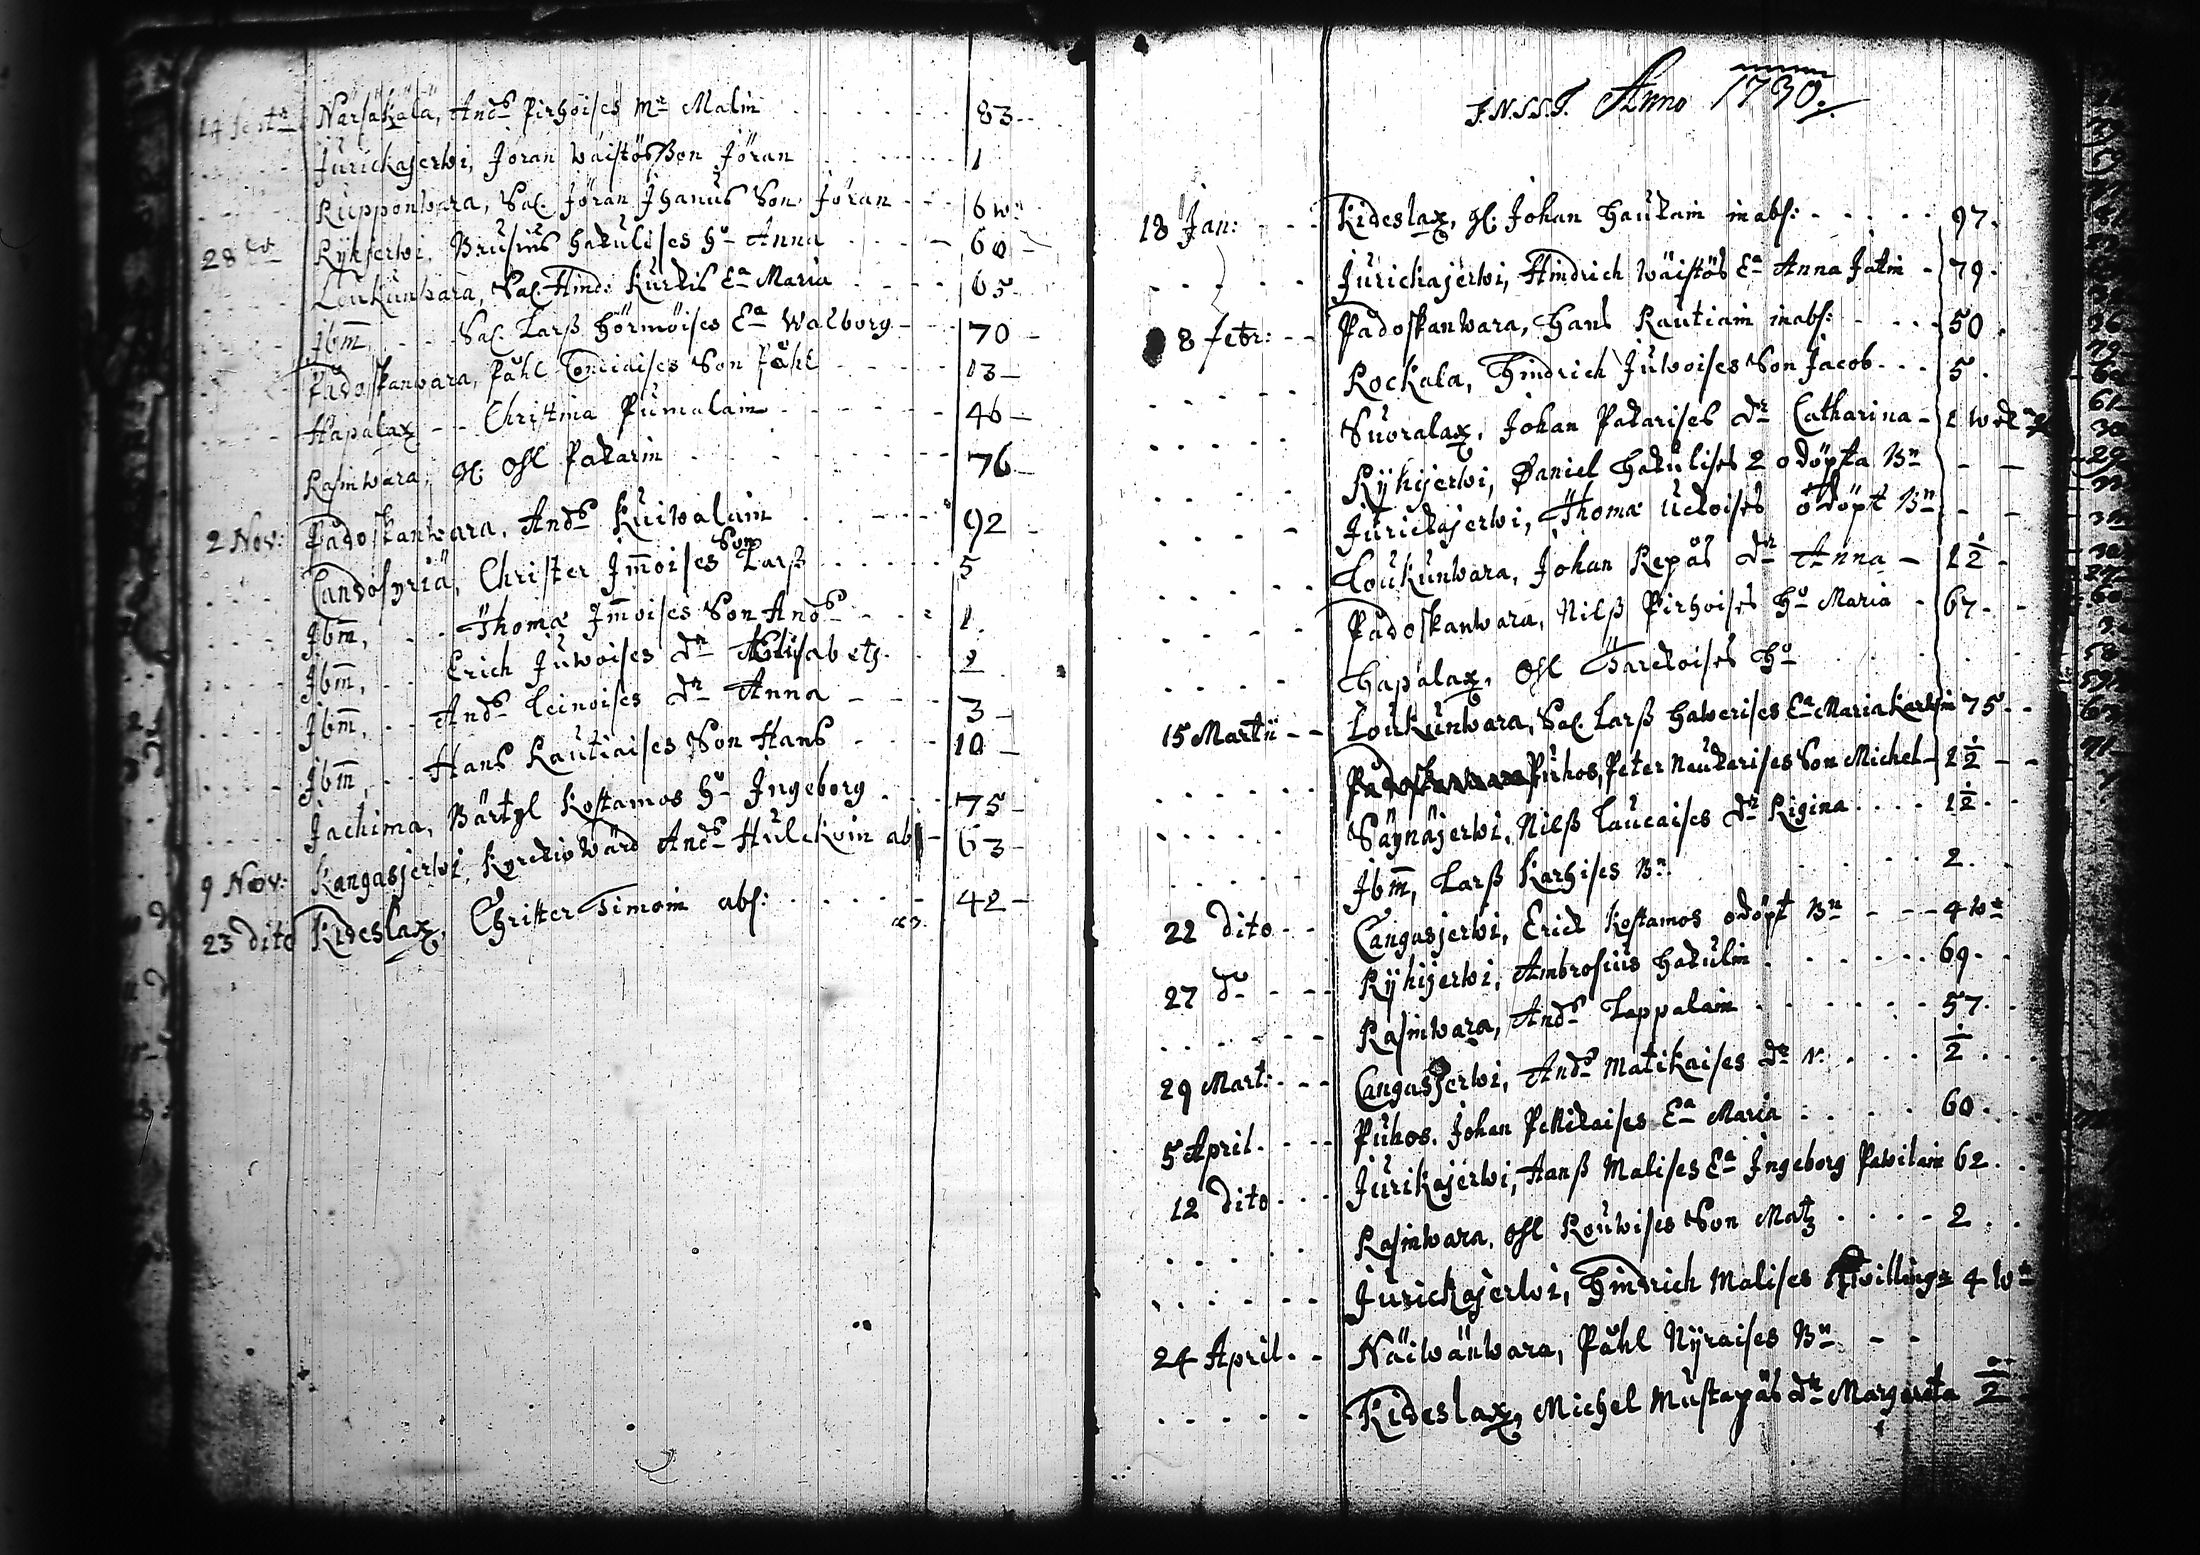 14 Sept: Närsäkälä, Ands Pirhoises Mr Malin 83
Jurickajerwi, Jöran Wäistös Son Jöran 1
Rupponwara, Sal. Jöran Jhanus Son Jöran 6 w:
28 do Rykijerwi, Brusius Hakulises Ho Anna 60
Loukunwara, Sal. Hind: Kurkis Ea Maria 65
Ibm, Sal. Larß Hörmöises Ea Walborg 70
Padoskanwara, Påhl Son Påhl 13
Hapalax Christina Pumalain 46
Rasinwara, gl. Ohl Pakarin 76
2 Nov: Padoskanwara, Ands Kuiwalain 92
Candosyriä, Christer Immoises Son Larß 5
Ibm, Thomæ Immoises Son Ands 1
Ibm, Erich Juwoises dr Elisabetz 2
Ibm, Ands Leinoises dr Anna 3
Ibm, Hans Rautiaises Son Hans 10
Jachima, Bärtyl Kostamos Ho Ingeborg 75
9 Nov: Kangasjerwi, Kyrckiowärd Ands Hulckoin ab 63
23 dito Kideslax, Christer Timoin abs: 42
J.N.S.S.T. Anno 1730.
18 Jan: Kideslax, gl. Johan Haukain inabs: 97.
Jurickajerwi, Hindrich Wäistös Ea Anna Jatin 79.
8 Febr: Padoskanwara, Hans Rautiain inabs: 50.
Rockala, Hindrich Juwoises Son Jacob 5.
Suoralax, Johan Pakarises dr Catharina 1 wek
Rykijerwi, Daniel Hakulises 2 odöpta Bn
Jurickajerwi, Thomæ Uckoises odöpt Bn
Loukunwara, Johan Repäs dr Anna 1½
Padoskanwara, Nilß Pirhoises Ho Maria 67.
Hapalax, Ohl Harckoises Ho
15 Martii Loukunwara, Sal. Larß Hawerises Ea Maria 75
Puhos, Peter Naukarises Son Michel 1½
Säynäjerwi, Nilß Laucaises dr Rigina 1½
Ibm, Larß Karhises Bn 2.
22 dito Cangasjerwi, Erick Kostamos odöpt Bn 4 w
27 do Rykijerwi, Ambrosius Hakulin 69.
Rasinwara, Ands Lappalain 57.
29 Mart: Cangasjerwi, Ands Matikaises dr N: ½
5 April. Puhos. Johan Ea Maria 60.
12 dito Jurikajerwi, Hanß Malises Ea Ingeborg Pawilain 62.
Rasinwara, Ohl Rouwises Son Matz 2.
Jurickajerwi, Hindrich Malises Twillingr 4 w
24 April. Näiwänwara, Påhl Nyraises Bn
Kideslax, Michel Mustapäs dr Margreta ½